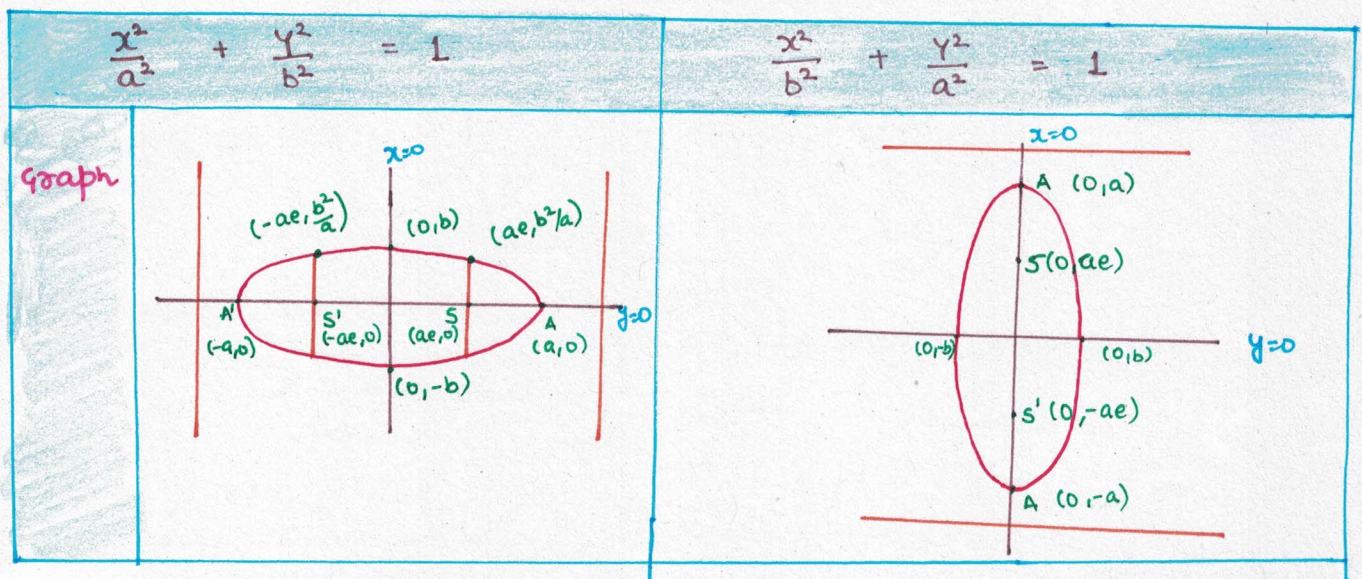 x²/a² + y²/b² = 1
x²/b² + y²/a² = 1
Graph
x=0
(-ae, b²/a)
(0,b)
(ae, b²/a)
A'
S'
S
A
y=0
(-a,0)
(-ae,0)
(ae,0)
(a,0)
(0,-b)
x=0
A (0,a)
S(0,ae)
(0,-b)
(0,b)
y=0
S' (0,-ae)
A (0,-a)